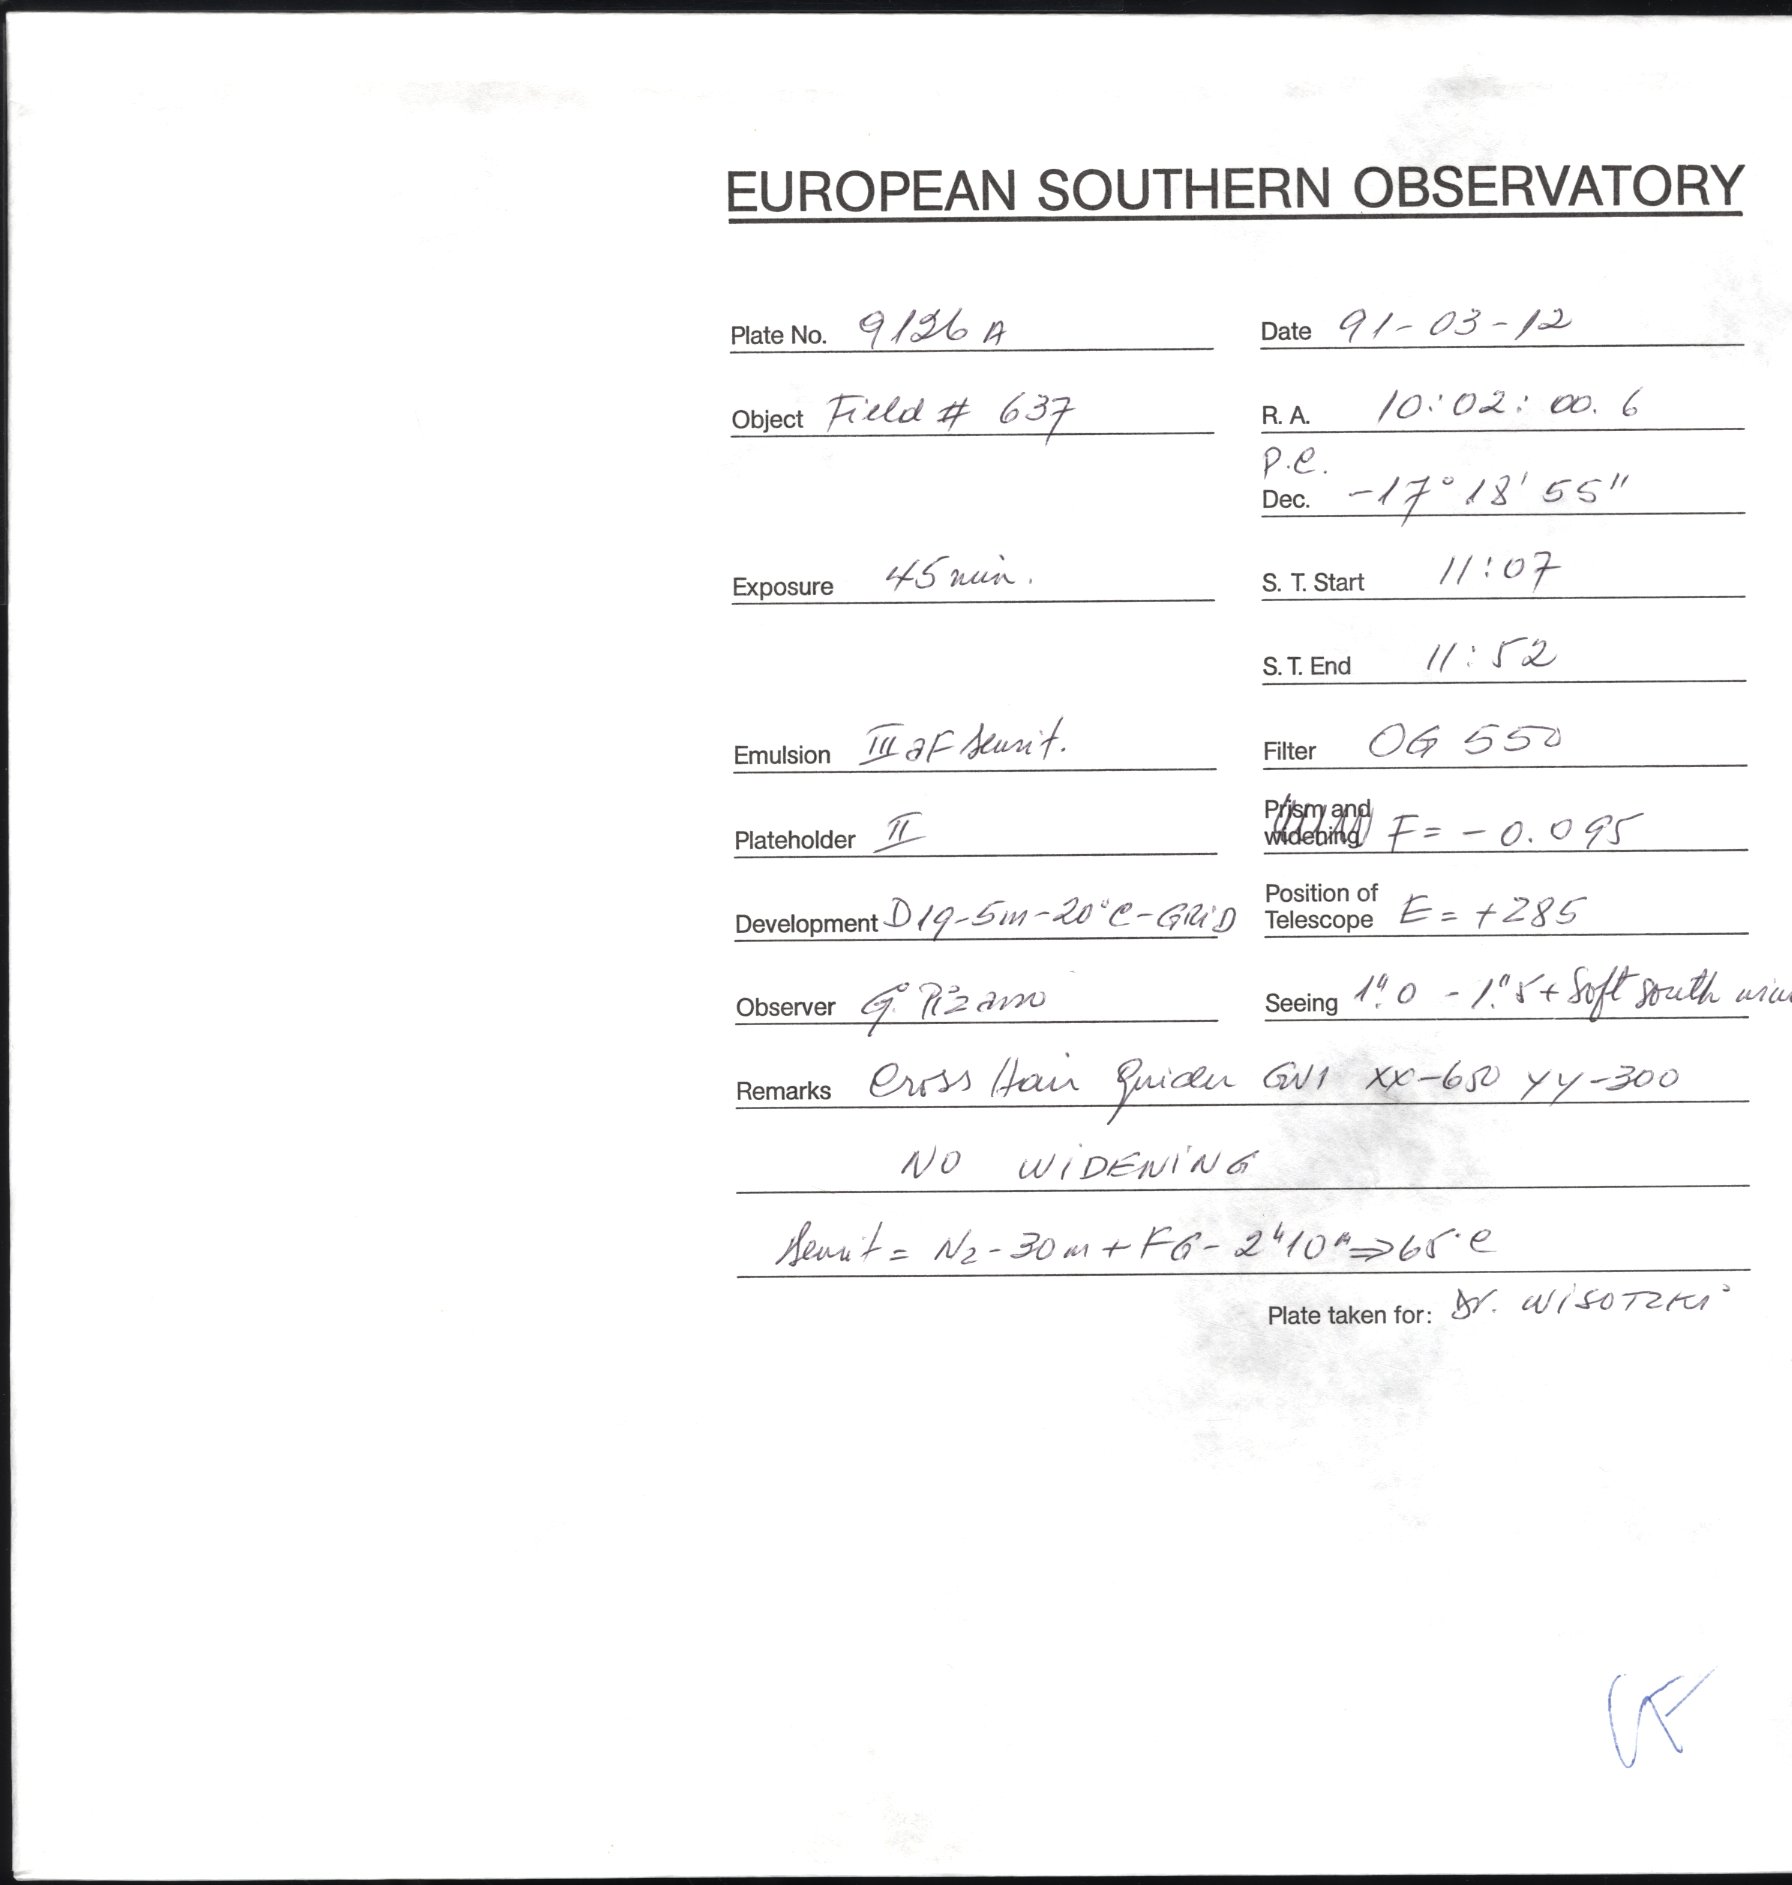 EUROPEAN SOUTHERN OBSERVATORY
Plate No. 9126 A Date 91-03-12
Object Field # 637 R. A. 10:02:00.6
P.C.
Dec. -17° 18' 55"
Exposure 45 min. S. T. Start 11:07
S. T. End 11:52
Emulsion III aF sensit. Filter OG 550
Plateholder II Prism and widening F = - 0.095
Development D19-5m-20°C-GRiD Position of Telescope E = +285
Observer G. Pizarro Seeing 1".0 - 1".5 + Soft south
Remarks Cross Hair Guider GW1 XX-650 YY-300
NO WiDENiNG
Sensit = N2 - 30m + FG - 2h10m => 65°C
Plate taken for: Dr. WiSOTZKi